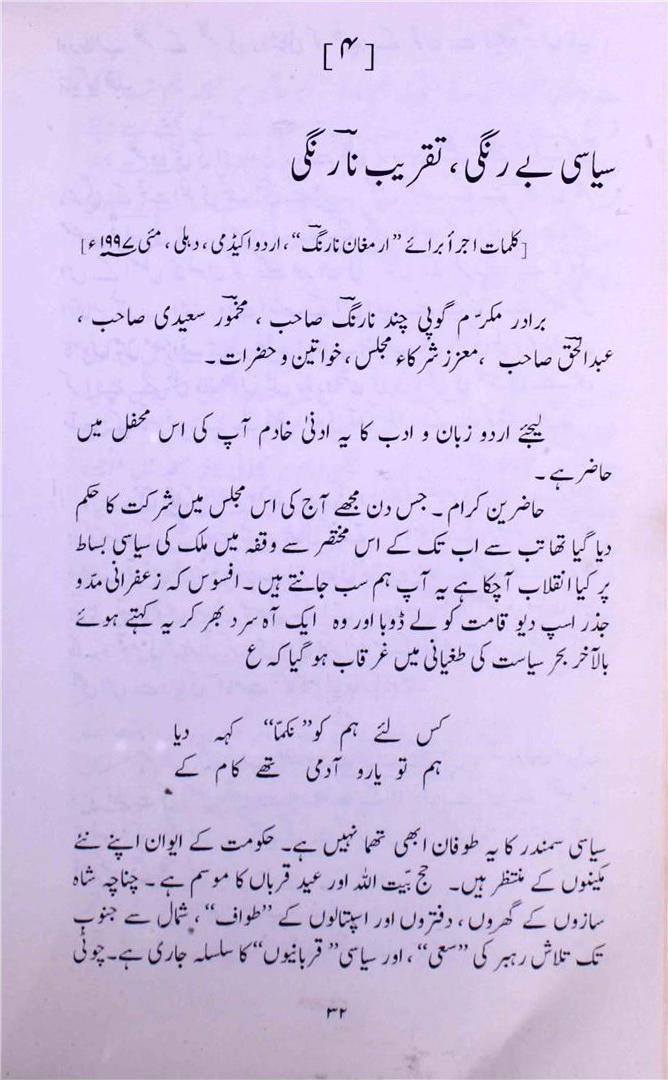 [۴]
سیاسی بے رنگی، تقریب نارنگی
[کلمات اجرأ برائے ”ارمغان نارنگ“، اردو اکیڈمی، دہلی، مئی ۱۹۹۷ء]
برادر مکرّم گوپی چند نارنگ صاحب، مخمور سعیدی صاحب،
عبدالحق صاحب، معزز شرکاء مجلس، خواتین و حضرات۔
لیجئے اردو زبان و ادب کا یہ ادنیٰ خادم آپ کی اس محفل میں
حاضر ہے۔
حاضرین کرام۔ جس دن مجھے آج کی اس مجلس میں شرکت کا حکم
دیا گیا تھا تب سے اب تک کے اس مختصر سے وقفہ میں ملک کی سیاسی بساط
پر کیا انقلاب آچکا ہے یہ آپ ہم سب جانتے ہیں۔ افسوس کہ زعفرانی مدّ و
جذر اسپ دیو قامت کو لے ڈوبا اور وہ ایک آہ سرد بھر کر یہ کہتے ہوئے
بالآخر بحر سیاست کی طغیانی میں غرقاب ہو گیا کہ ع
کس لئے ہم کو ”نکمّا“ کہہ دیا
ہم تو یارو آدمی تھے کام کے
سیاسی سمندر کا یہ طوفان ابھی تھما نہیں ہے۔ حکومت کے ایوان اپنے نئے
مکینوں کے منتظر ہیں۔ حج بیّت اللہ اور عید قرباں کا موسم ہے۔ چناچہ شاہ
سازوں کے گھروں، دفتروں اور اسپتالوں کے ”طواف“، شمال سے جنوب
تک تلاش رہبر کی ”سعی“، اور سیاسی ”قربانیوں“ کا سلسلہ جاری ہے۔ چوٹی
۳۲